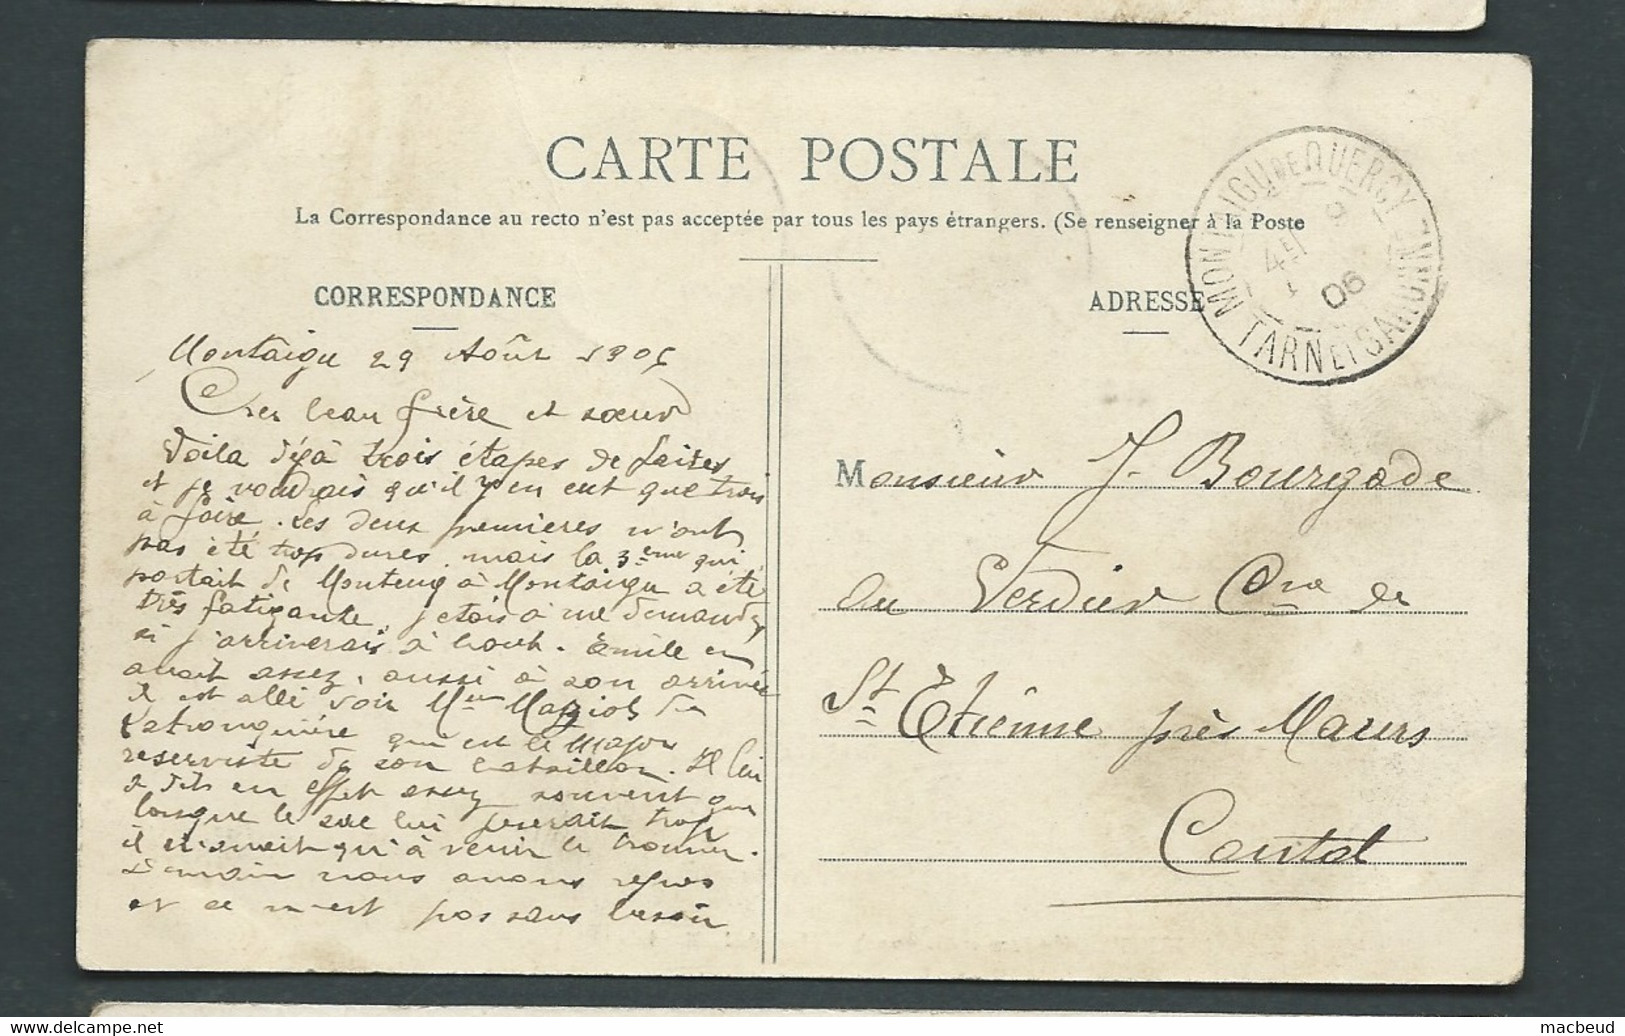 CARTE POSTALE
La Correspondance au recto n'est pas acceptée par tous les pays étrangers. (Se renseigner à la Poste
CORRESPONDANCE
ADRESSE
MONTAIGU DE QUERCY
9
06
TARN ET GARONNE
Montaigu 29 Août 1906
Cher beau frère et sœur
Voila déjà trois étapes de faites
et je voudrais qu'il y en eut que trois
à faire. Les deux premières n'ont
pas été trop dures, mais la 3ème qui
partait de à Montaigu a été
très fatigante, j'étais à me demander
si j'arriverais à bout. Emile en
avait assez, aussi à son arrivée
il est allé voir Mr de
Latronquière qui est le Major
reserviste de son bataillon. Il lui
a dit en effet assez souvent que
lorsque le sac lui peserait trop
il n'avait qu'à venir le trouver.
Demain nous avons repos
et ce n'est pas sans besoin
Monsieur J. Bourgade
au Verdier Cne de
St Etienne près Maurs
Cantal
macbeud